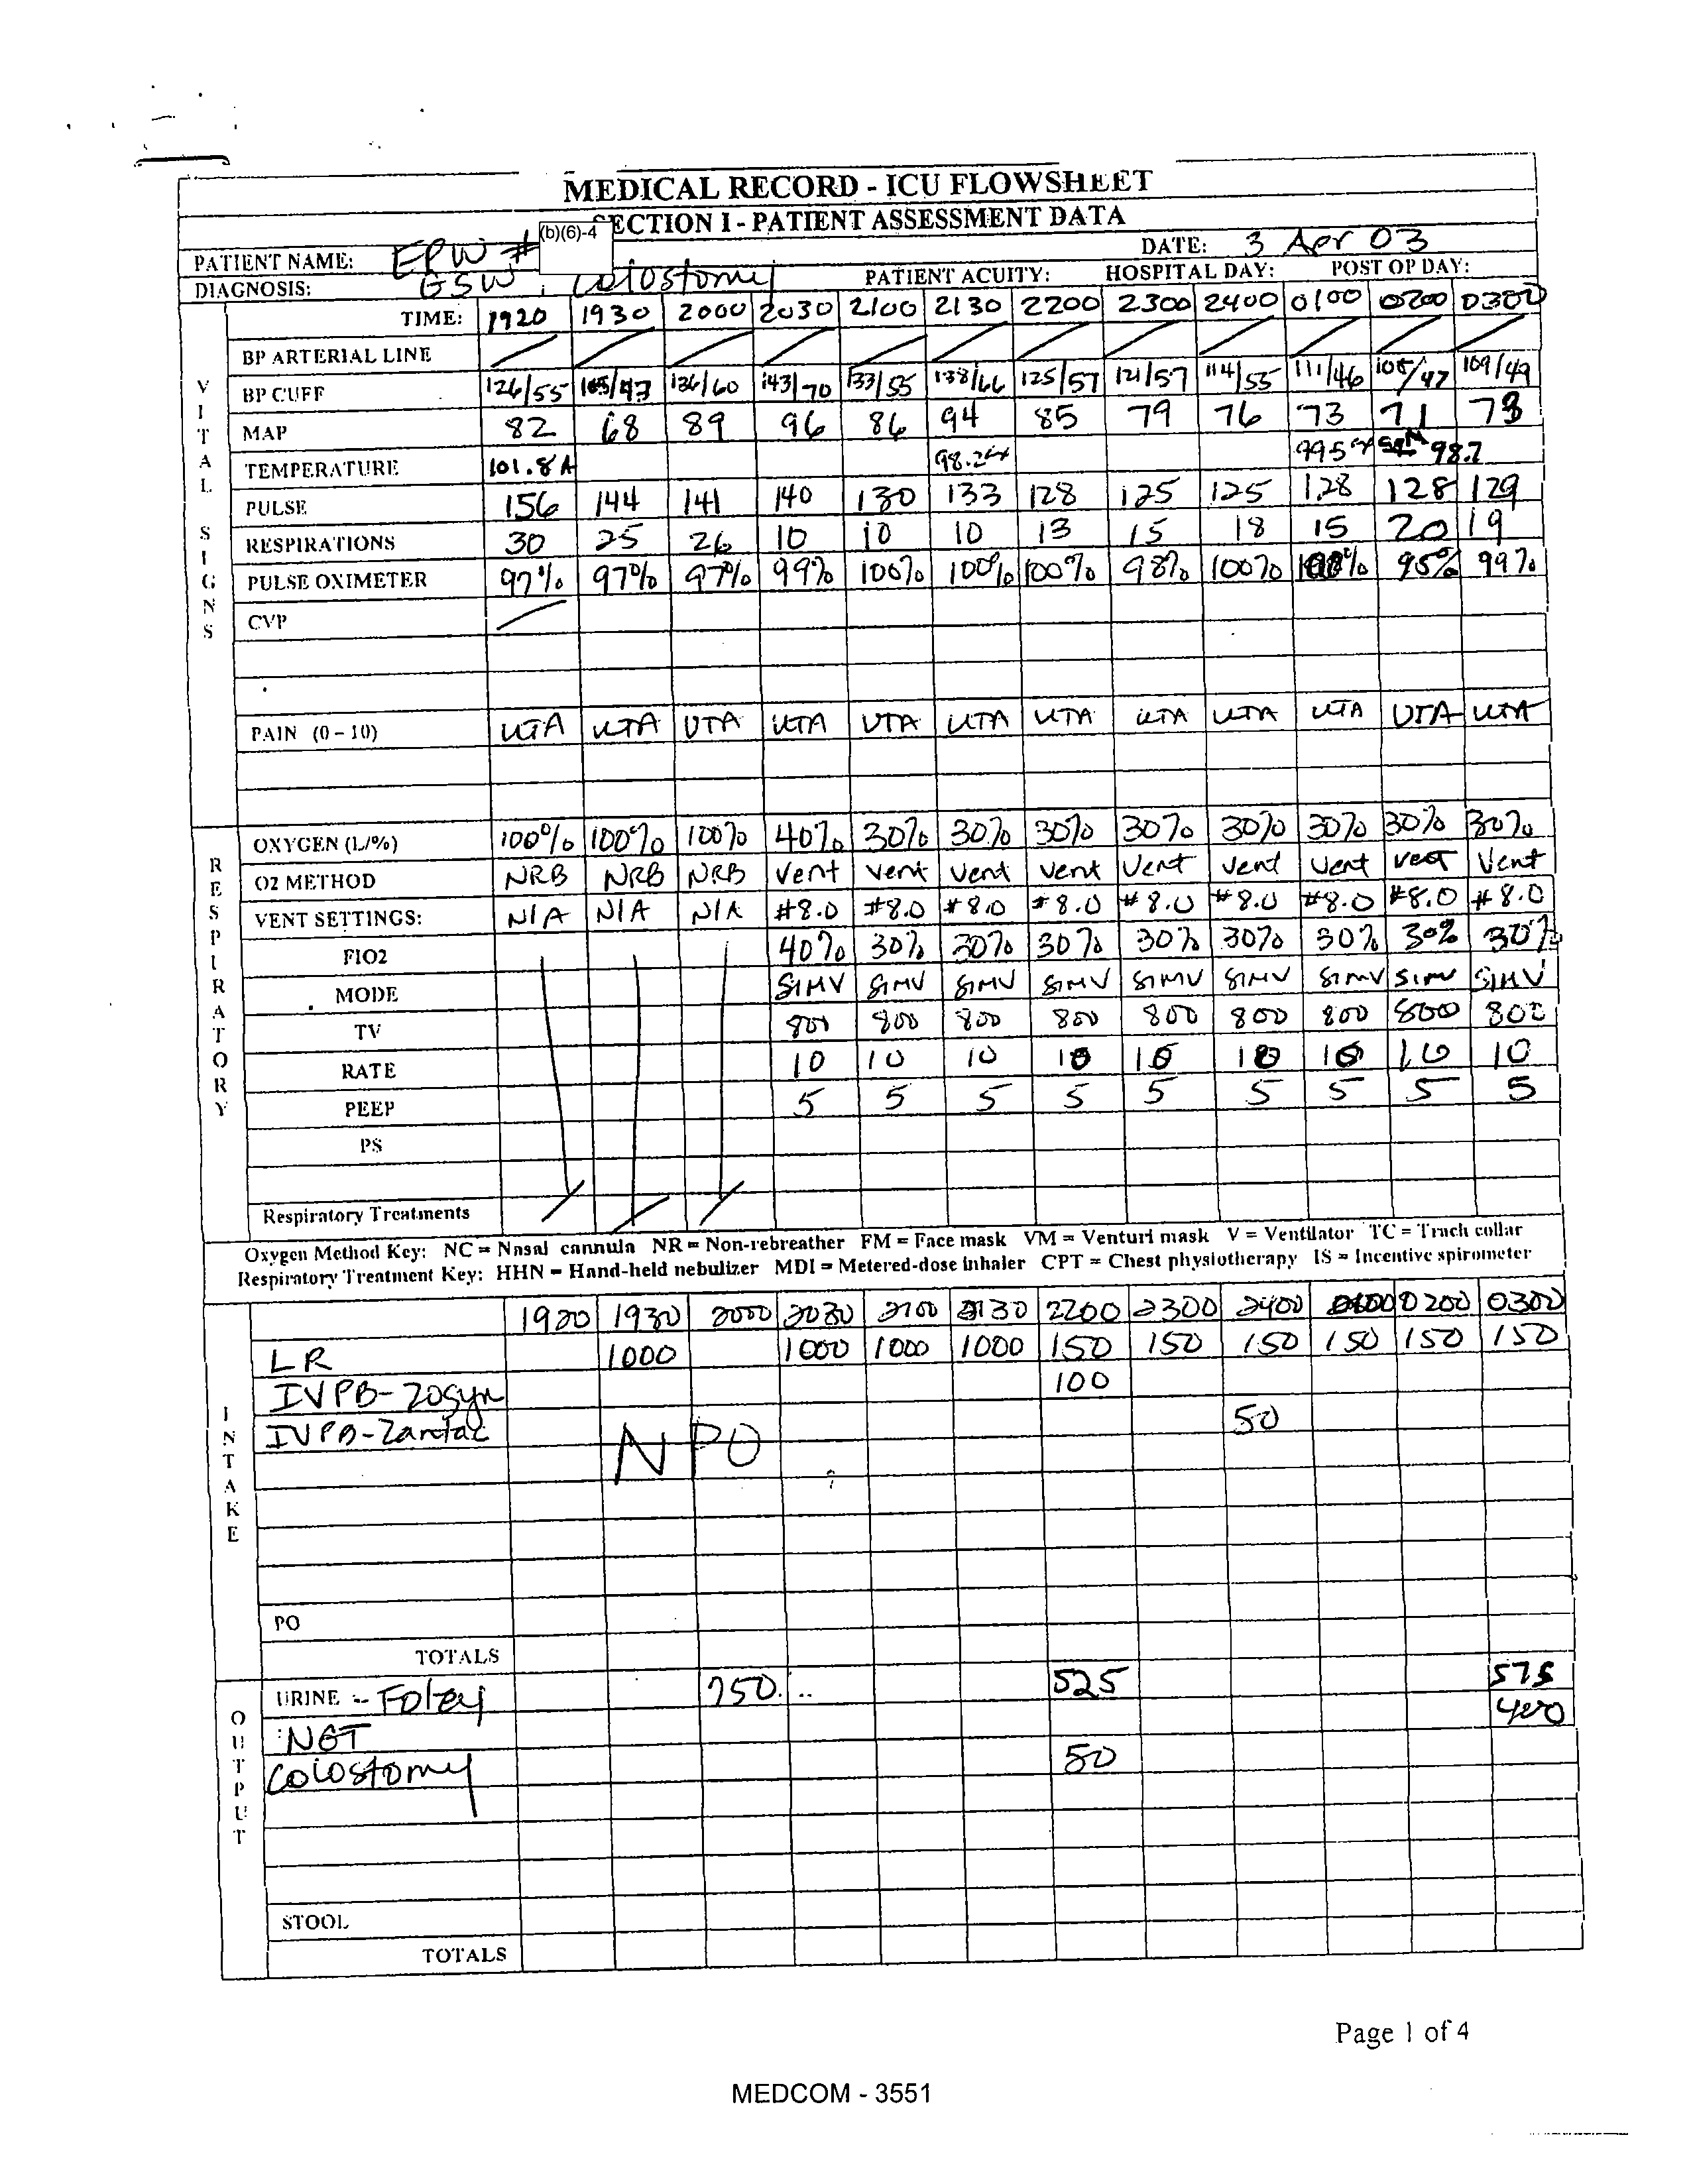 MEDICAL RECORD - ICU FLOWSHEET
SECTION I - PATIENT ASSESSMENT DATA
PATIENT NAME: EPW # (b)(6)-4 DATE: 3 Apr 03
DIAGNOSIS: GSW, Colostomy PATIENT ACUITY: HOSPITAL DAY: POST OP DAY:
VITAL SIGNS
TIME: 1920 1930 2000 2030 2100 2130 2200 2300 2400 0100 0200 0300
BP ARTERIAL LINE
BP CUFF 126/55 136/60 143/70 133/55 138/66 125/57 121/57 114/55 111/46 108/47 109/49
MAP 82 68 89 96 86 94 85 79 76 73 71 73
TEMPERATURE 101.8A 98.2 99.5 98.7
PULSE 156 144 141 140 130 133 128 125 125 128 128 129
RESPIRATIONS 30 25 26 10 10 10 13 15 18 15 20 19
PULSE OXIMETER 97% 97% 97% 99% 100% 100% 100% 98% 100% 95% 99%
CVP
PAIN (0 - 10) UTA UTA UTA UTA UTA UTA UTA UTA UTA UTA UTA UTA
RESPIRATORY
OXYGEN (L/%) 100% 100% 100% 40% 30% 30% 30% 30% 30% 30% 30% 30%
O2 METHOD NRB NRB NRB Vent Vent Vent Vent Vent Vent Vent Vent Vent
VENT SETTINGS: N/A N/A N/A #8.0 #8.0 #8.0 #8.0 #8.0 #8.0 #8.0 #8.0 #8.0
FIO2 40% 30% 30% 30% 30% 30% 30% 30% 30%
MODE SIMV SIMV SIMV SIMV SIMV SIMV SIMV SIMV SIMV
TV 800 800 800 800 800 800 800 800 800
RATE 10 10 10 10 10 10 10 10 10
PEEP 5 5 5 5 5 5 5 5 5
PS
Respiratory Treatments
Oxygen Method Key: NC = Nasal cannula NR = Non-rebreather FM = Face mask VM = Venturi mask V = Ventilator TC = Trach collar
Respiratory Treatment Key: HHN = Hand-held nebulizer MDI = Metered-dose inhaler CPT = Chest physiotherapy IS = Incentive spirometer
INTAKE
1920 1930 2000 2030 2100 2130 2200 2300 2400 0100 0200 0300
LR 1000 1000 1000 1000 150 150 150 150 150 150
IVPB-Zosyn 100
IVPB-Zantac 50
NPO
PO
TOTALS
OUTPUT
URINE - Foley 750 525 575
NGT 400
Colostomy 50
STOOL
TOTALS
Page 1 of 4
MEDCOM - 3551